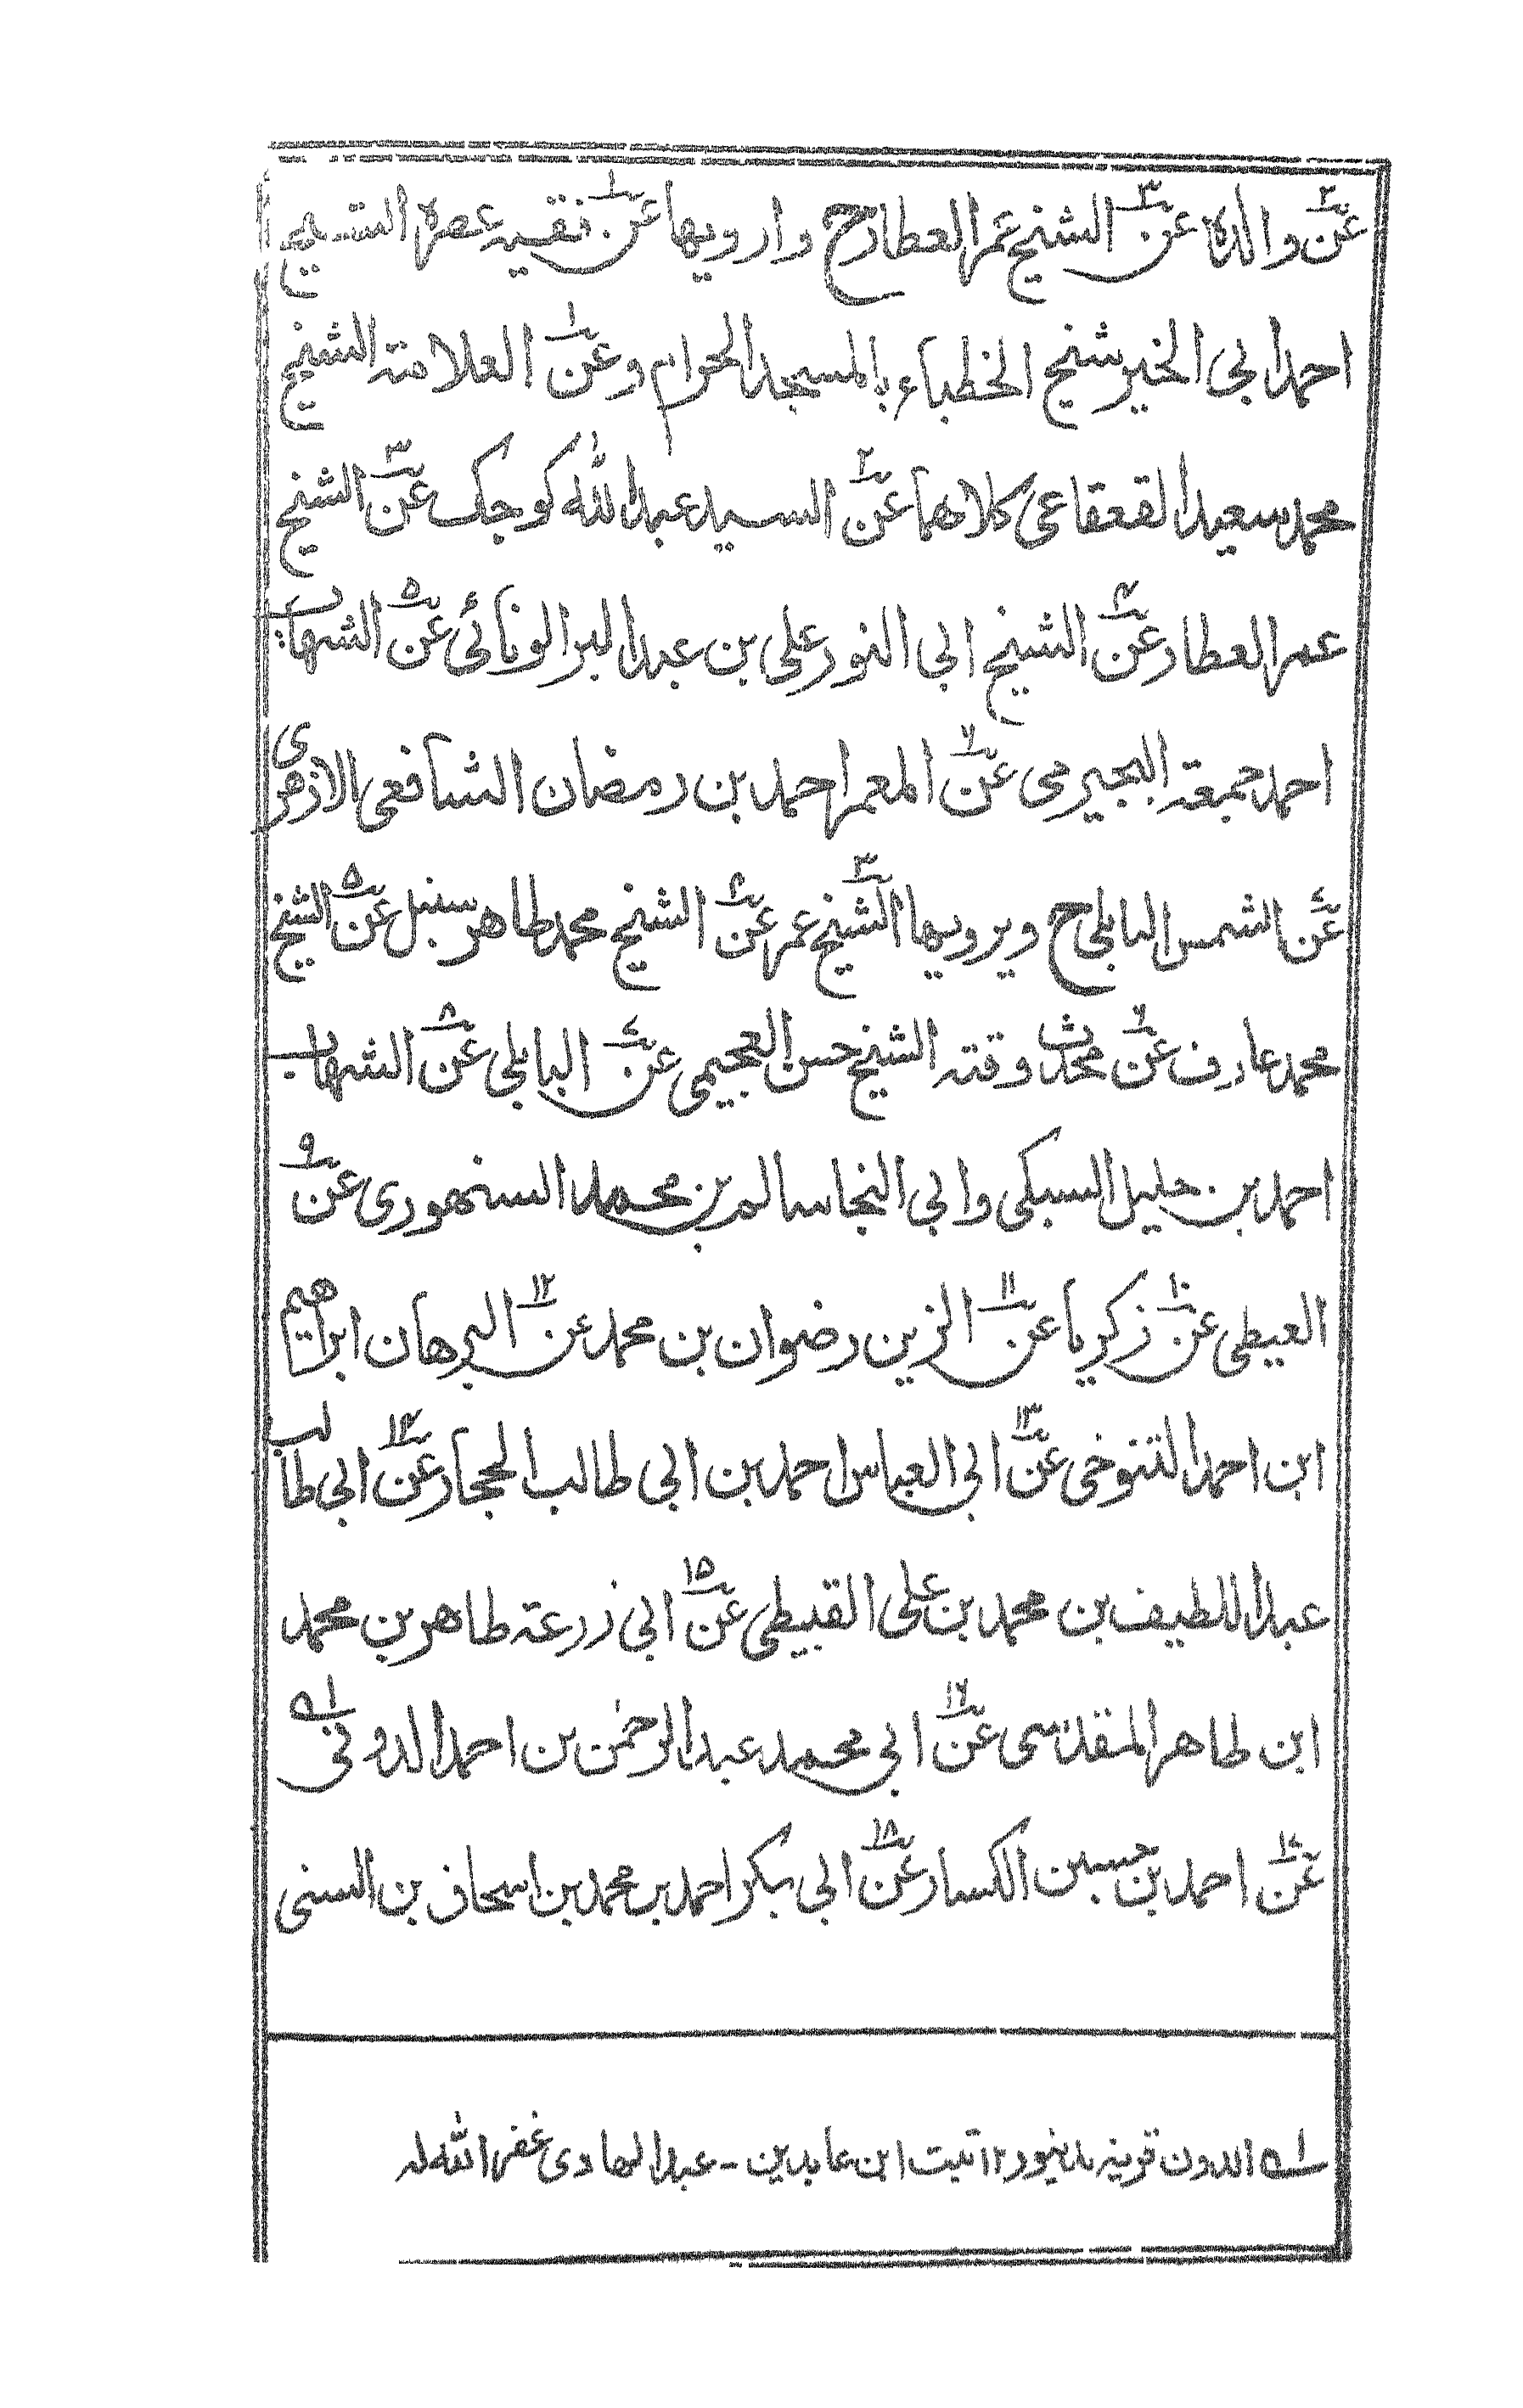 عن٢ والده عن٣ الشیخ عمر العطار ح وارویها عن١ فقیه عصره الشیخ
احمد ابی الخیر شیخ الخطباء بالمسجد الحرام وعن١ العلامۃ الشیخ
محمد سعید القعقاعی کلاهما عن٢ السید عبد الله کوجک عن٣ الشیخ
عمر العطار عن٤ الشیخ ابی النور علی بن عبد البر الونائی عن٥ الشهاب
احمد جمعۃ البجیرمی عن٦ المعمر احمد بن رمضان الشافعی الازهری
عن٧ الشمس البابلی ح ویرویها الشیخ٣ عمر عن٤ الشیخ محمد طاهر سنبل عن٥ الشیخ
محمد عارف عن٦ محدث وقتہ الشیخ حسن العجیمی عن٧ البابلی عن٨ الشهاب
احمد بن خلیل السبکی وابی النجا سالم بن محمد السنهوری عن٩
الغیطی عن١٠ زکریا عن١١ الزین رضوان بن محمد عن١٢ البرهان ابراهیم
ابن احمد التنوخی عن١٣ ابی العباس احمد بن ابی طالب الحجار عن١٤ ابی طالب
عبد اللطیف بن محمد بن علی القبیطی عن١٥ ابی زرعۃ طاهر بن محمد
ابن طاهر المقدسی عن١٦ ابی محمد عبد الرحمٰن بن احمد الدونی ؁١
عن١٧ احمد بن حسین الکسار عن١٨ ابی بکر احمد بن محمد بن اسحاق بن السنی
؁١ الدون قریۃ بدینور ١٢ ثبت ابن عابدین - عبد الهادی غفر الله لہ